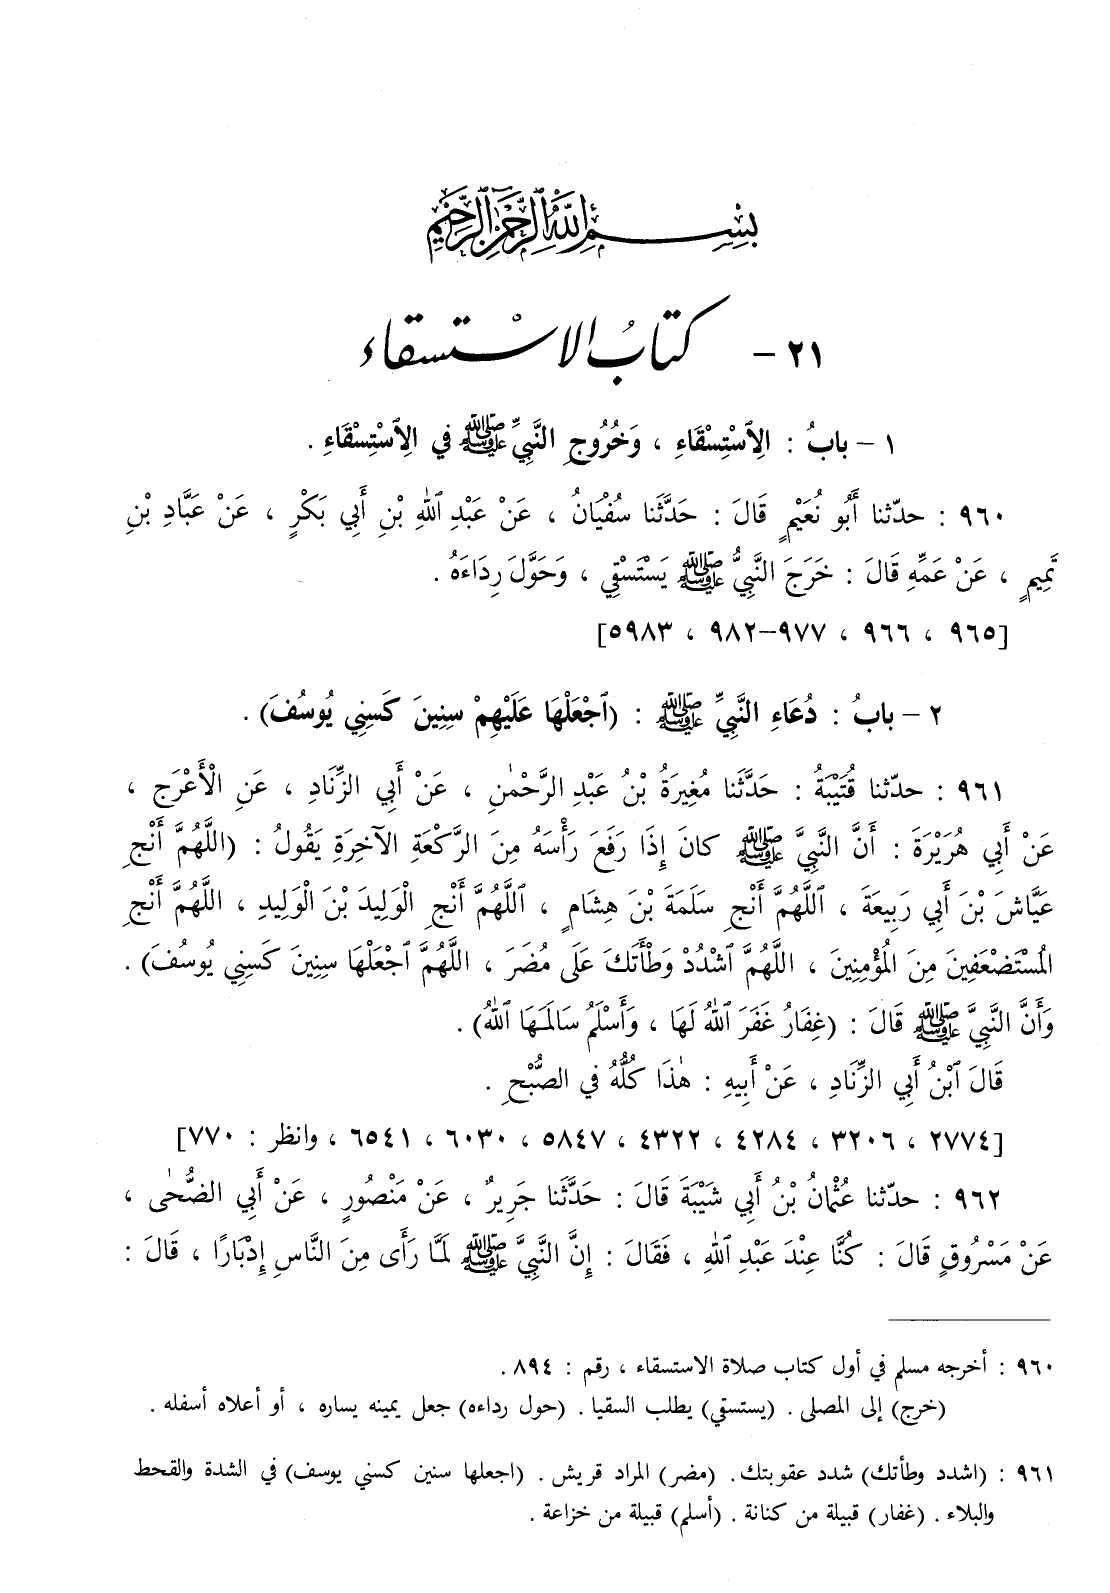 بِسْمِ اللَّهِ الرَّحْمَٰنِ الرَّحِيمِ
٢١ – كتابُ الاسْتسقاء
١ – بابُ : الِٱسْتِسْقَاءِ ، وَخُرُوجِ النَّبِيِّ ﷺ في الِٱسْتِسْقَاءِ .
٩٦٠ : حدّثنا أَبُو نُعَيْمٍ قَالَ : حَدَّثَنَا سُفْيَانُ ، عَنْ عَبْدِ ٱللهِ بْنِ أَبِي بَكْرٍ ، عَنْ عَبَّادِ بْنِ
تَمِيمٍ ، عَنْ عَمِّهِ قَالَ : خَرَجَ النَّبِيُّ ﷺ يَسْتَسْقِي ، وَحَوَّلَ رِدَاءَهُ .
[٩٦٥ ، ٩٦٦ ، ٩٧٧–٩٨٢ ، ٥٩٨٣]
٢ – بابُ : دُعَاءِ النَّبِيِّ ﷺ : (ٱجْعَلْهَا عَلَيْهِمْ سِنِينَ كَسِنِي يُوسُفَ) .
٩٦١ : حدّثنا قُتَيْبَةُ : حَدَّثَنَا مُغِيرَةُ بْنُ عَبْدِ الرَّحْمٰنِ ، عَنْ أَبِي الزِّنَادِ ، عَنِ الْأَعْرَجِ ،
عَنْ أَبِي هُرَيْرَةَ : أَنَّ النَّبِيَّ ﷺ كانَ إِذَا رَفَعَ رَأْسَهُ مِنَ الرَّكْعَةِ الآخِرَةِ يَقُولُ : (اللَّهُمَّ أَنْجِ
عَيَّاشَ بْنَ أَبِي رَبِيعَةَ ، ٱللَّهُمَّ أَنْجِ سَلَمَةَ بْنَ هِشَامٍ ، ٱللَّهُمَّ أَنْجِ الْوَلِيدَ بْنَ الْوَلِيدِ ، اللَّهُمَّ أَنْجِ
المُسْتَضْعَفِينَ مِنَ المُؤْمِنِينَ ، اللَّهُمَّ ٱشْدُدْ وَطْأَتَكَ عَلَى مُضَرَ ، اللَّهُمَّ ٱجْعَلْهَا سِنِينَ كَسِنِي يُوسُفَ) .
وَأَنَّ النَّبِيَّ ﷺ قَالَ : (غِفَارُ غَفَرَ ٱللهُ لَهَا ، وَأَسْلَمُ سَالَمَهَا ٱللهُ) .
قَالَ ٱبْنُ أَبِي الزِّنَادِ ، عَنْ أَبِيهِ : هٰذَا كُلُّهُ في الصُّبْحِ .
[٢٧٧٤ ، ٣٢٠٦ ، ٤٢٨٤ ، ٤٣٢٢ ، ٥٨٤٧ ، ٦٠٣٠ ، ٦٥٤١ ، وانظر : ٧٧٠]
٩٦٢ : حدّثنا عُثْمانُ بْنُ أَبِي شَيْبَةَ قَالَ : حَدَّثَنَا جَرِيرٌ ، عَنْ مَنْصُورٍ ، عَنْ أَبِي الضُّحٰى ،
عَنْ مَسْرُوقٍ قَالَ : كُنَّا عِنْدَ عَبْدِ ٱللهِ ، فَقَالَ : إِنَّ النَّبِيَّ ﷺ لَمَّا رَأَى مِنَ النَّاسِ إِدْبَارًا ، قَالَ :
٩٦٠ : أخرجه مسلم في أول كتاب صلاة الاستسقاء ، رقم : ٨٩٤ .
(خرج) إلى المصلى . (يستسقي) يطلب السقيا . (حول رداءه) جعل يمينه يساره ، أو أعلاه أسفله .
٩٦١ : (اشدد وطأتك) شدد عقوبتك . (مضر) المراد قريش . (اجعلها سنين كسني يوسف) في الشدة والقحط
والبلاء . (غفار) قبيلة من كنانة . (أسلم) قبيلة من خزاعة .